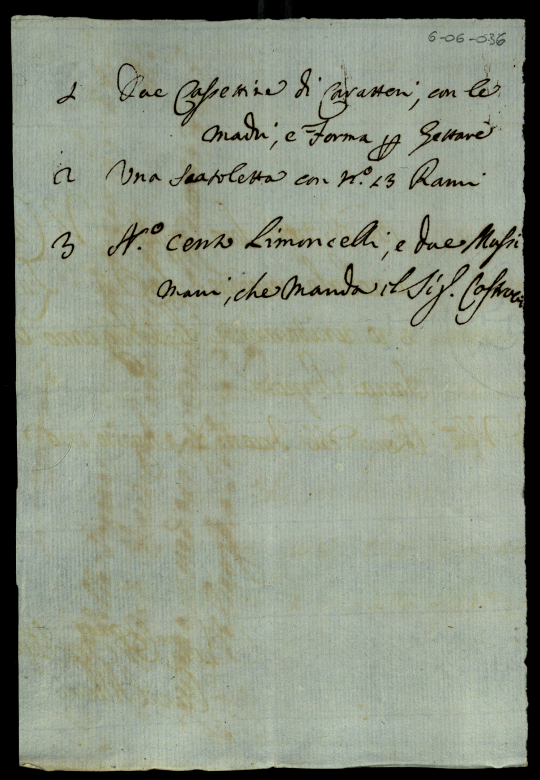 6-06-036
1 Due Cassettine di Caratteri, con le
madri, e Forma p Gettare
2 Una Scatoletta con N.º 13 Rami
3 N.º cento Limoncelli, e due Mussi
mani, che manda il Sig.